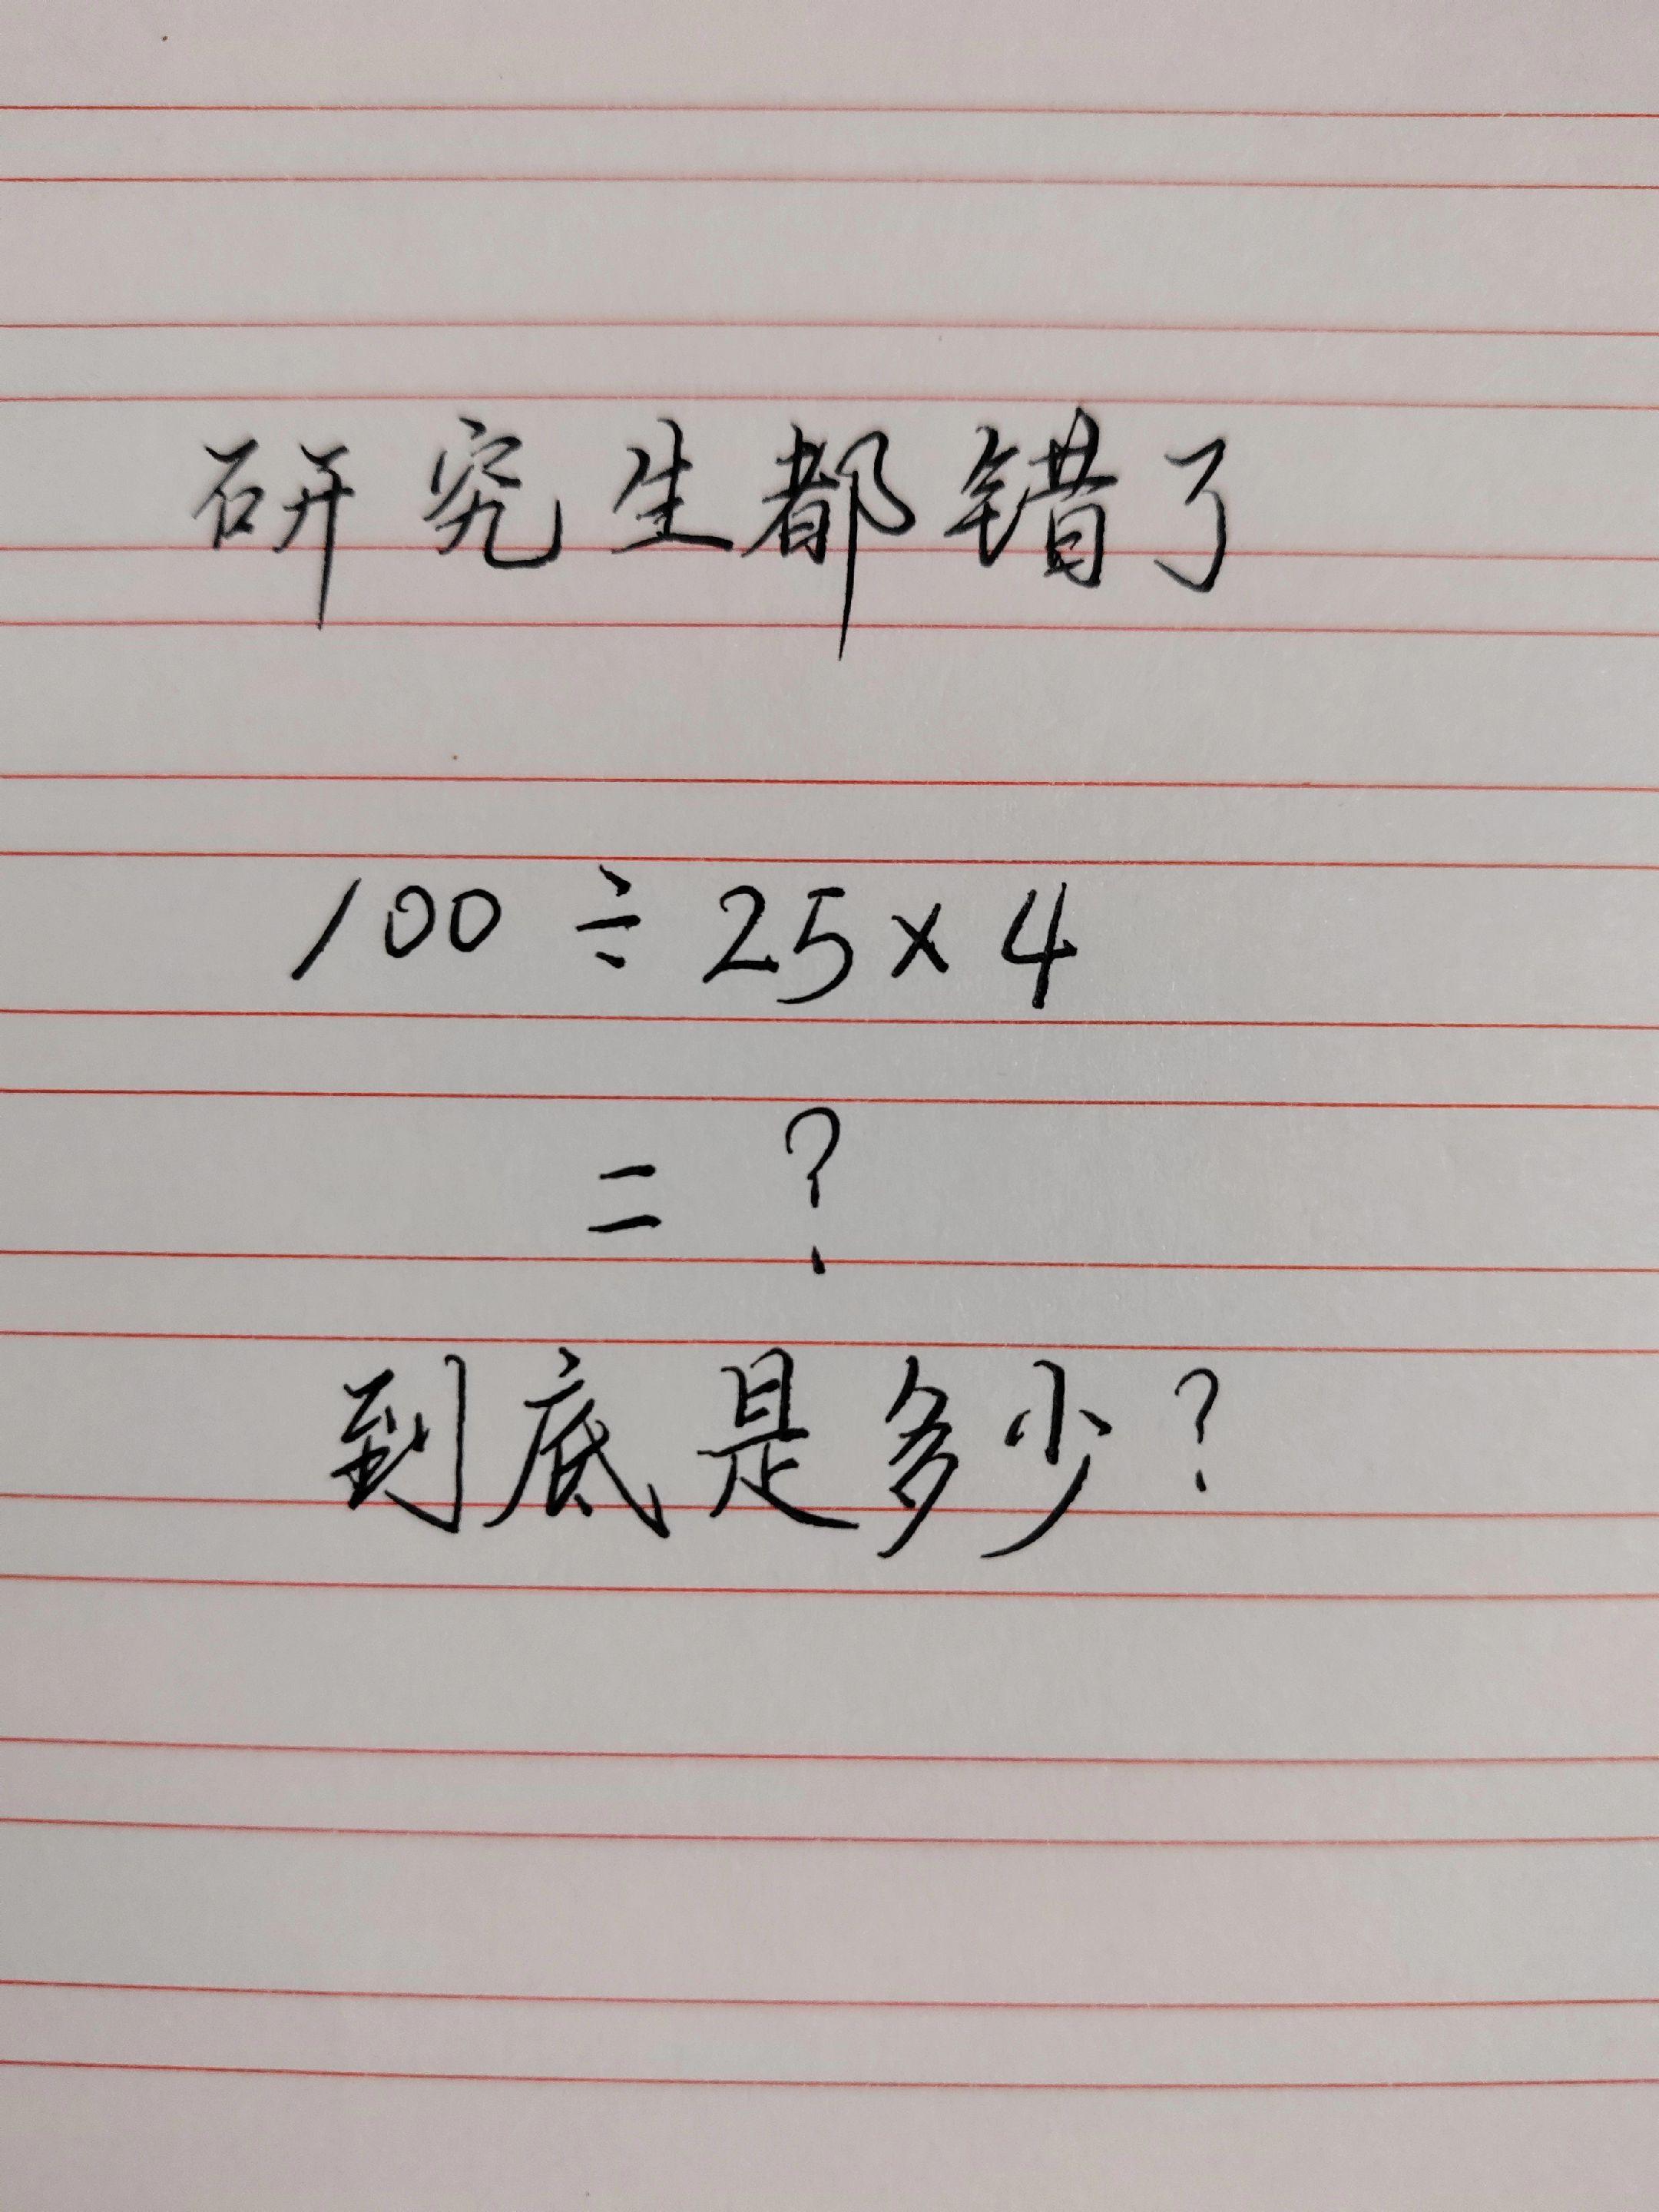 研究生都错了
100÷25×4
=?
到底是多少?